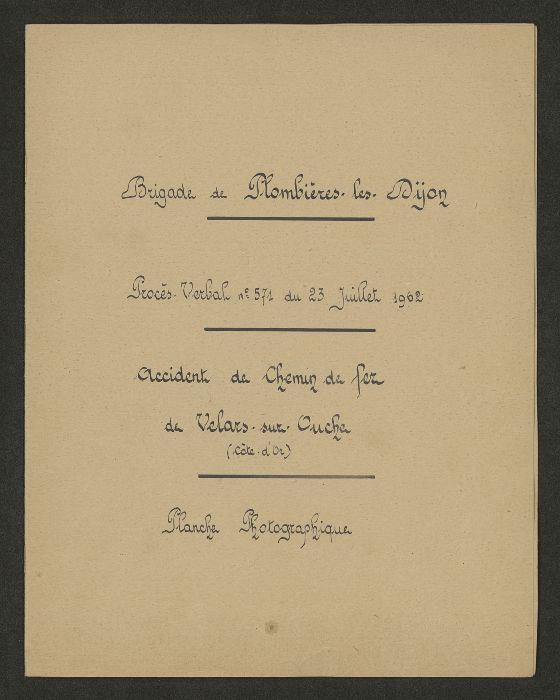 Brigade de Plombières-les-Dijon
Procès-Verbal n° 571 du 23 Juillet 1962
Accident de Chemin de fer
de Velars-sur-Ouche
(Côte-d'Or)
Planche Photographique